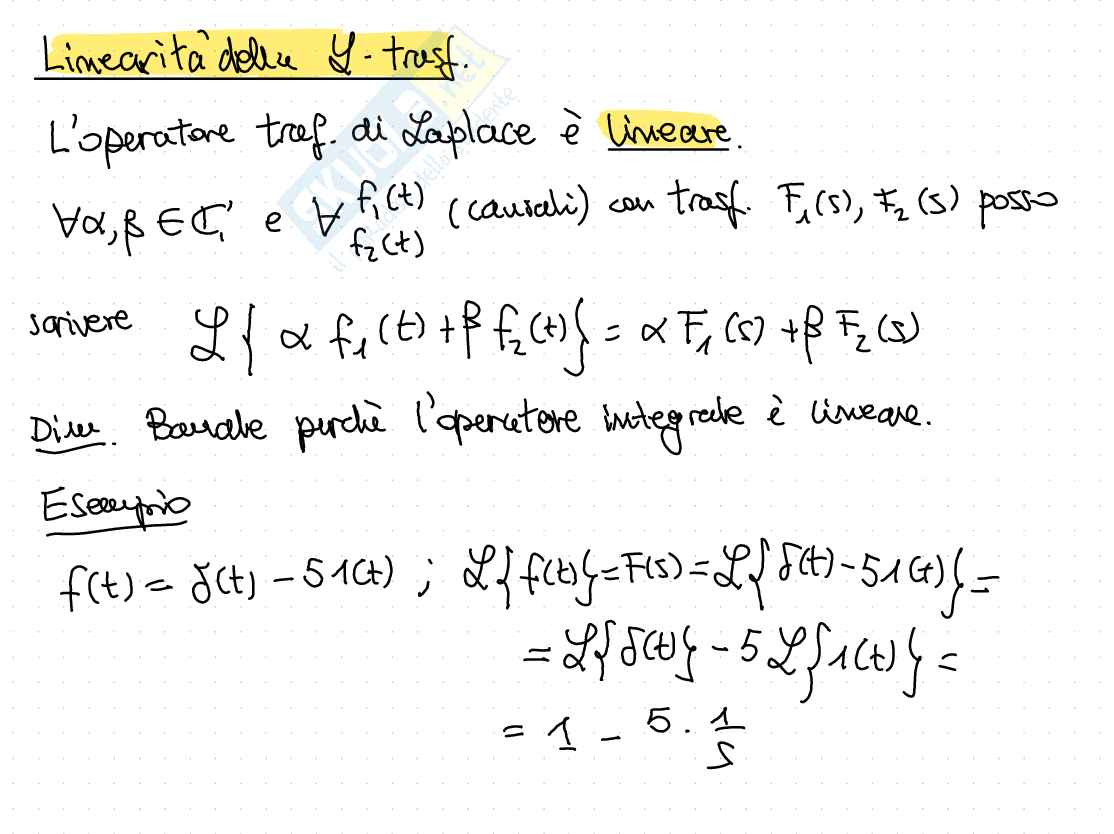 Linearità della ℒ-trasf.
L'operatore trasf. di Laplace è lineare.
∀α, β ∈ ℂ, e ∀ f₁(t) f₂(t) (causali) con trasf. F₁(s), F₂(s) posso
scrivere ℒ{α f₁(t) + β f₂(t)} = α F₁(s) + β F₂(s)
Dim. Banale perchè l'operatore integrale è lineare.
Esempio
f(t) = δ(t) - 5 1(t) ; ℒ{f(t)} = F(s) = ℒ{δ(t) - 5 1(t)} =
= ℒ{δ(t)} - 5 ℒ{1(t)} =
= 1 - 5 · 1/s